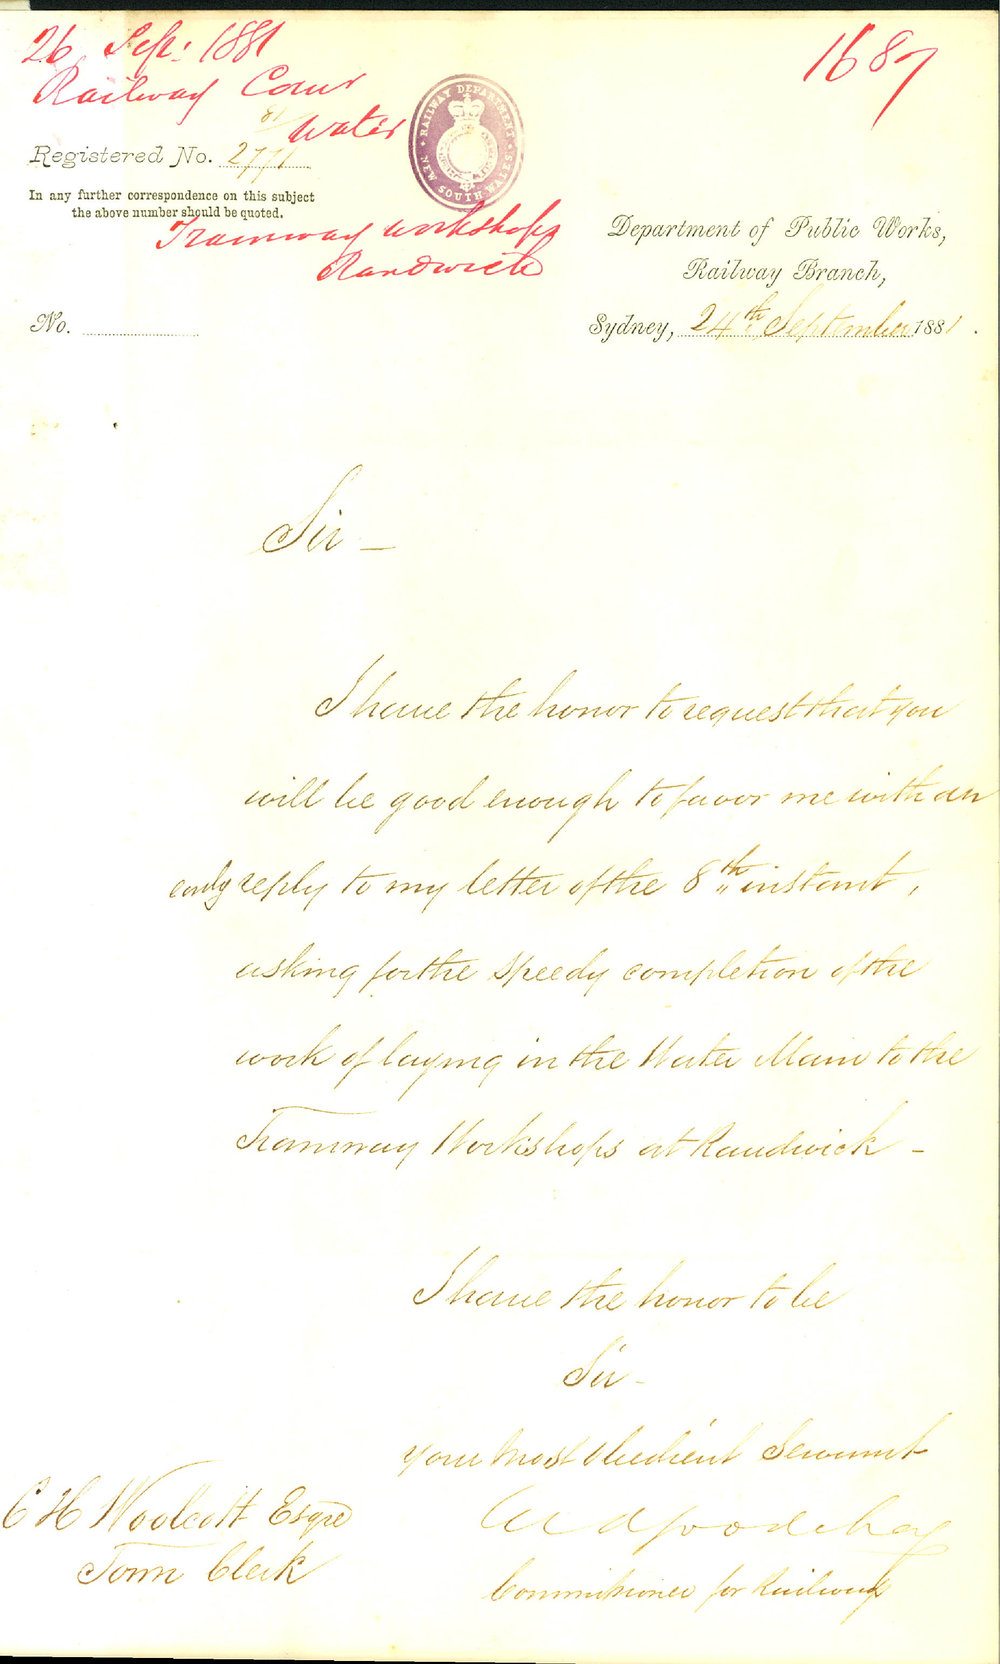 26 Sep: 1881
1687
Railway Comr
Water
RAILWAY DEPARTMENT
NEW SOUTH WALES
81/
Registered No. 2771
In any further correspondence on this subject
the above number should be quoted.
Tramway Workshops
Randwick
Department of Public Works,
Railway Branch,
No.
Sydney, 24th September 1881.
Sir —
I have the honor to request that you
will be good enough to favor me with an
early reply to my letter of the 8th instant,
asking for the speedy completion of the
work of laying in the Water Main to the
Tramway Workshops at Randwick —
I have the honor to be
Sir —
Your most obedient Servant
Goodchap
Commissioner for Railways
C H Woolcott Esqre
Town Clerk